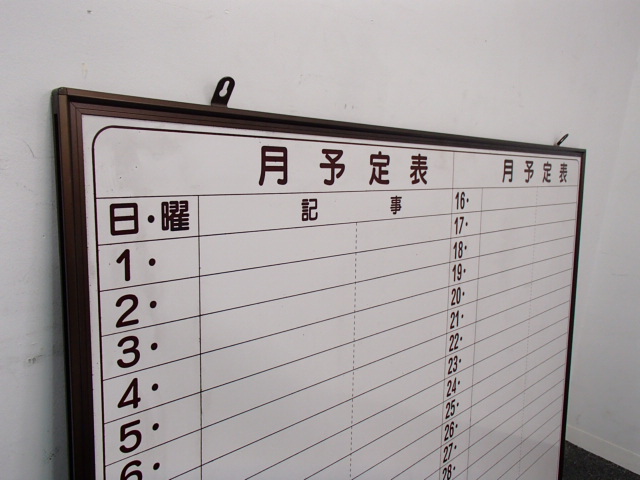 月予定表
日・曜 記事
1・
2・
3・
4・
5・
6・
月予定表
16・
17・
18・
19・
20・
21・
22・
23・
24・
25・
26・
27・
28・